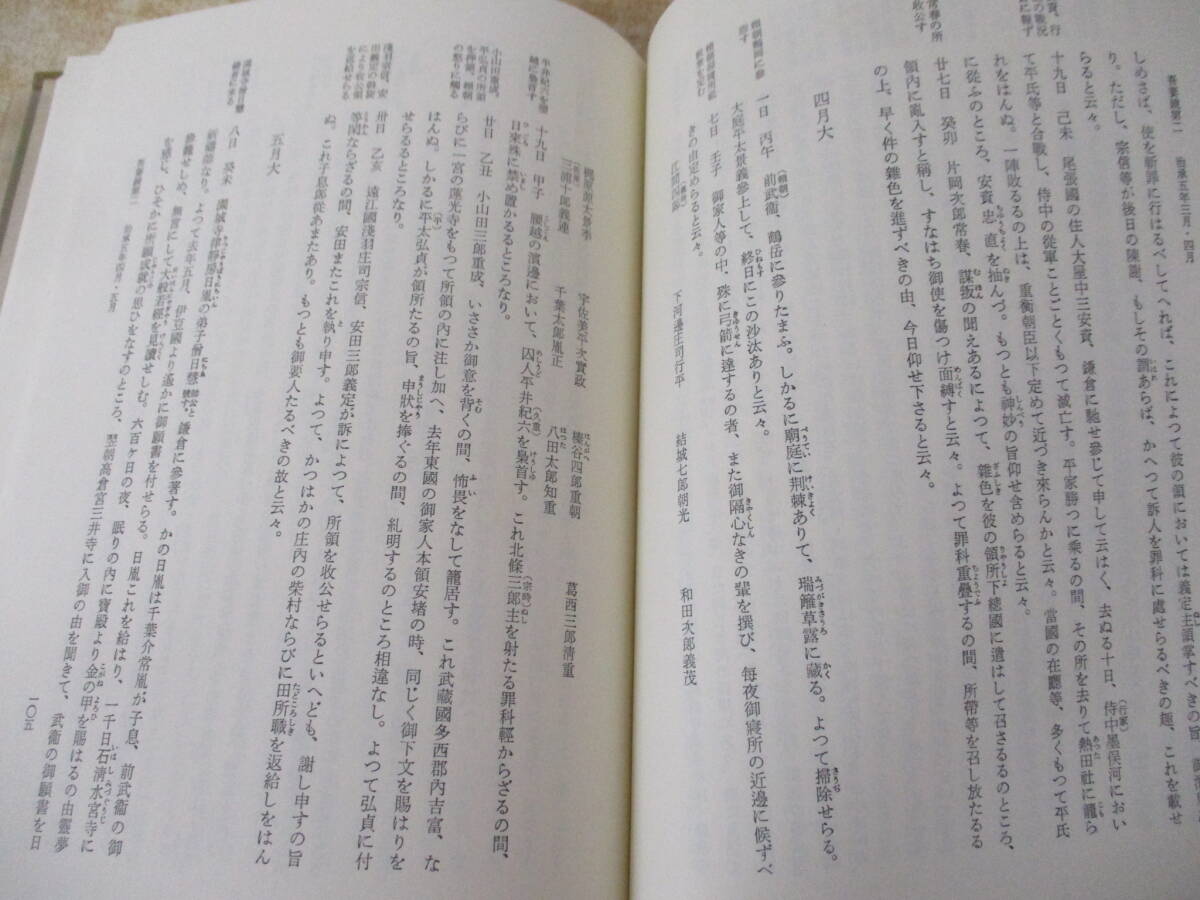 吾妻鏡第二　治承五年三月・四月
しめさば、使を斬罪に行はるべしてへれば、これによって
り。ただし、宗信等が後日の陳謝、もしその謂あらば、かへつて訴人を罪科に處せらるべきの趣、これを載せ
らると云々。
十九日　己未　尾張國の住人大屋中三安資、鎌倉に馳せ參じて申して云はく、去ぬる十日、侍中墨俣河におい
て平氏等と合戰し、侍中の從軍ことごとくもつて滅亡す。平家勝つに乘るの間、その所を去りて熱田社に籠ら
れをはんぬ。一陣敗るるの上は、重衡朝臣以下定めて近づき來らんかと云々。當國の在廳等、多くもつて平氏
に從ふのところ、安資忠直を抽んづ。もつとも神妙の旨仰せ含めらると云々。
廿七日　癸卯　片岡次郎常春、謀叛の聞えあるによつて、雜色を彼の領所下總國に遣はして召さるるのところ、
領内に亂入すと稱し、すなはち御使を傷つけ面縛すと云々。よつて罪科重疊するの間、所帶等を召し放たるる
の上、早く件の雜色を進ずべきの由、今日仰せ下さると云々。
四月大
一日　丙午　前武衞、鶴岳に參りたまふ。しかるに廟庭に荊棘ありて、瑞籬草露に藏る。よつて掃除せらる。
大庭平太景義參上して、終日にこの沙汰ありと云々。
七日　壬子　御家人等の中、殊に弓箭に達するの者、また御隔心なきの輩を撰び、毎夜御寢所の近邊に候ずべ
きの由定めらると云々。
江間四郎　下河邊庄司行平　結城七郎朝光　和田次郎義茂
梶原源太景季　宇佐美平次實政　榛谷四郎重朝　葛西三郎清重
三浦十郎義連　千葉太郎胤正　八田太郎知重
十九日　甲子　腰越の濱邊において、囚人平井紀六を梟首す。これ北條三郎主を射たる罪科輕からざるの間、
日來殊に禁め置かるるところなり。
廿日　乙丑　小山田三郎重成、いささか御意を背くの間、怖畏をなして籠居す。これ武藏國多西郡内吉富、な
らびに一宮の蓮光寺をもつて所領の内に注し加へ、去年東國の御家人本領安堵の時、同じく御下文を賜はりを
はんぬ。しかるに平太弘貞が領所たるの旨、申狀を捧ぐるの間、糺明するのところ相違なし。よつて弘貞に付
せらるるところなり。
卅日　乙亥　遠江國淺羽庄司宗信、安田三郎義定が訴によつて、所領を收公せらるといへども、謝し申すの旨
等閑ならざるの間、安田またこれを執り申す。よつて、かつはかの庄内の柴村ならびに田所職を返給しをはん
ぬ。これ子息郎從あまたあり。もつとも御要人たるべきの故と云々。
五月大
八日　癸未　園城寺律靜房日胤の弟子僧日惠、鎌倉に參著す。かの日胤は千葉介常胤が子息、前武衞の御
祈禱師なり。よつて去年五月、伊豆國より遙かに御願書を付せらる。日胤これを給はり、一千日石清水宮寺に
參籠せしめ、無言にして大般若經を見讀せしむ。六百ヶ日の夜、眠りの内に寶殿より金の甲を賜はるの由靈夢
を感じ、ひそかに所願成就の思ひをなすのところ、翌朝高倉宮三井寺に入御の由を聞きて、武衞の御願書を日
吾妻鏡第二　治承五年四月・五月
一〇五